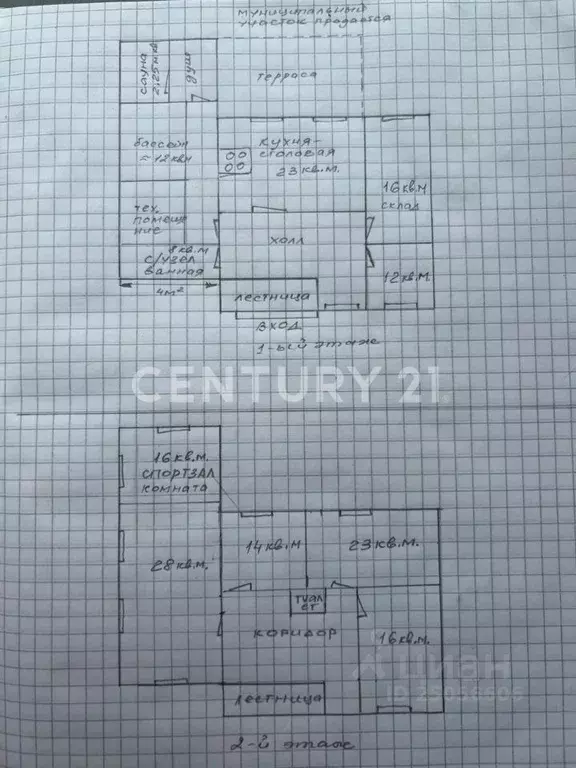 муниципальный
участок продается
сауна
2.25 м кв
душ
терраса
бассейн
≈ 12 квм
кухня-
столовая
23 кв.м.
16 кв.м
склад
тех.
помеще
ние
холл
8 кв.м
с/узел
ванная
4м²
12 кв.м.
лестница
вход
1-ый этаж
CENTURY 21
16 кв.м.
спортзал
комната
14 кв.м
23 кв.м.
28 кв.м.
туал
ет
коридор
16 кв.м.
циан
лестница
2-й этаж